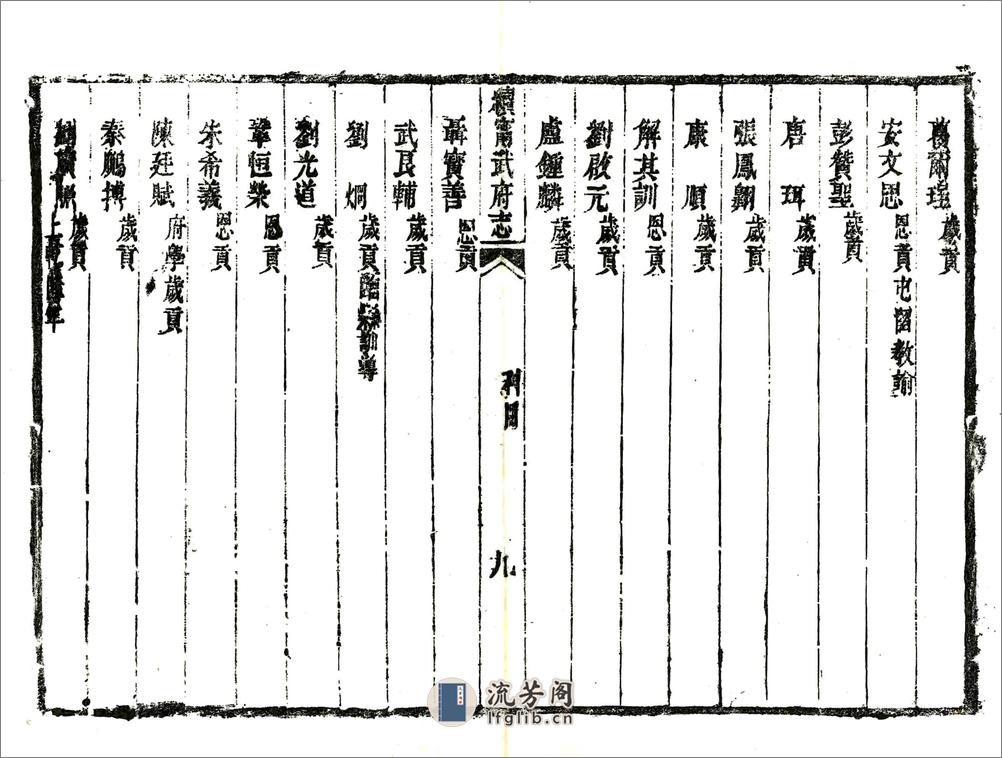 爾瑆歲貢
安文思恩貢屯留教諭
彭贊聖歲貢
唐珥歲貢
張鳳翱歲貢
康順歲貢
解其訓恩貢
劉啟元歲貢
盧鍾麟歲貢
續甯武府志
科目
九
聶寶善恩貢
武良輔歲貢
劉烱歲貢訓導
劉光道歲貢
鞏恒榮恩貢
朱希義恩貢
陳廷賦府學歲貢
秦鵬搏歲貢
劉歲貢
流芳阁
lfglib.cn